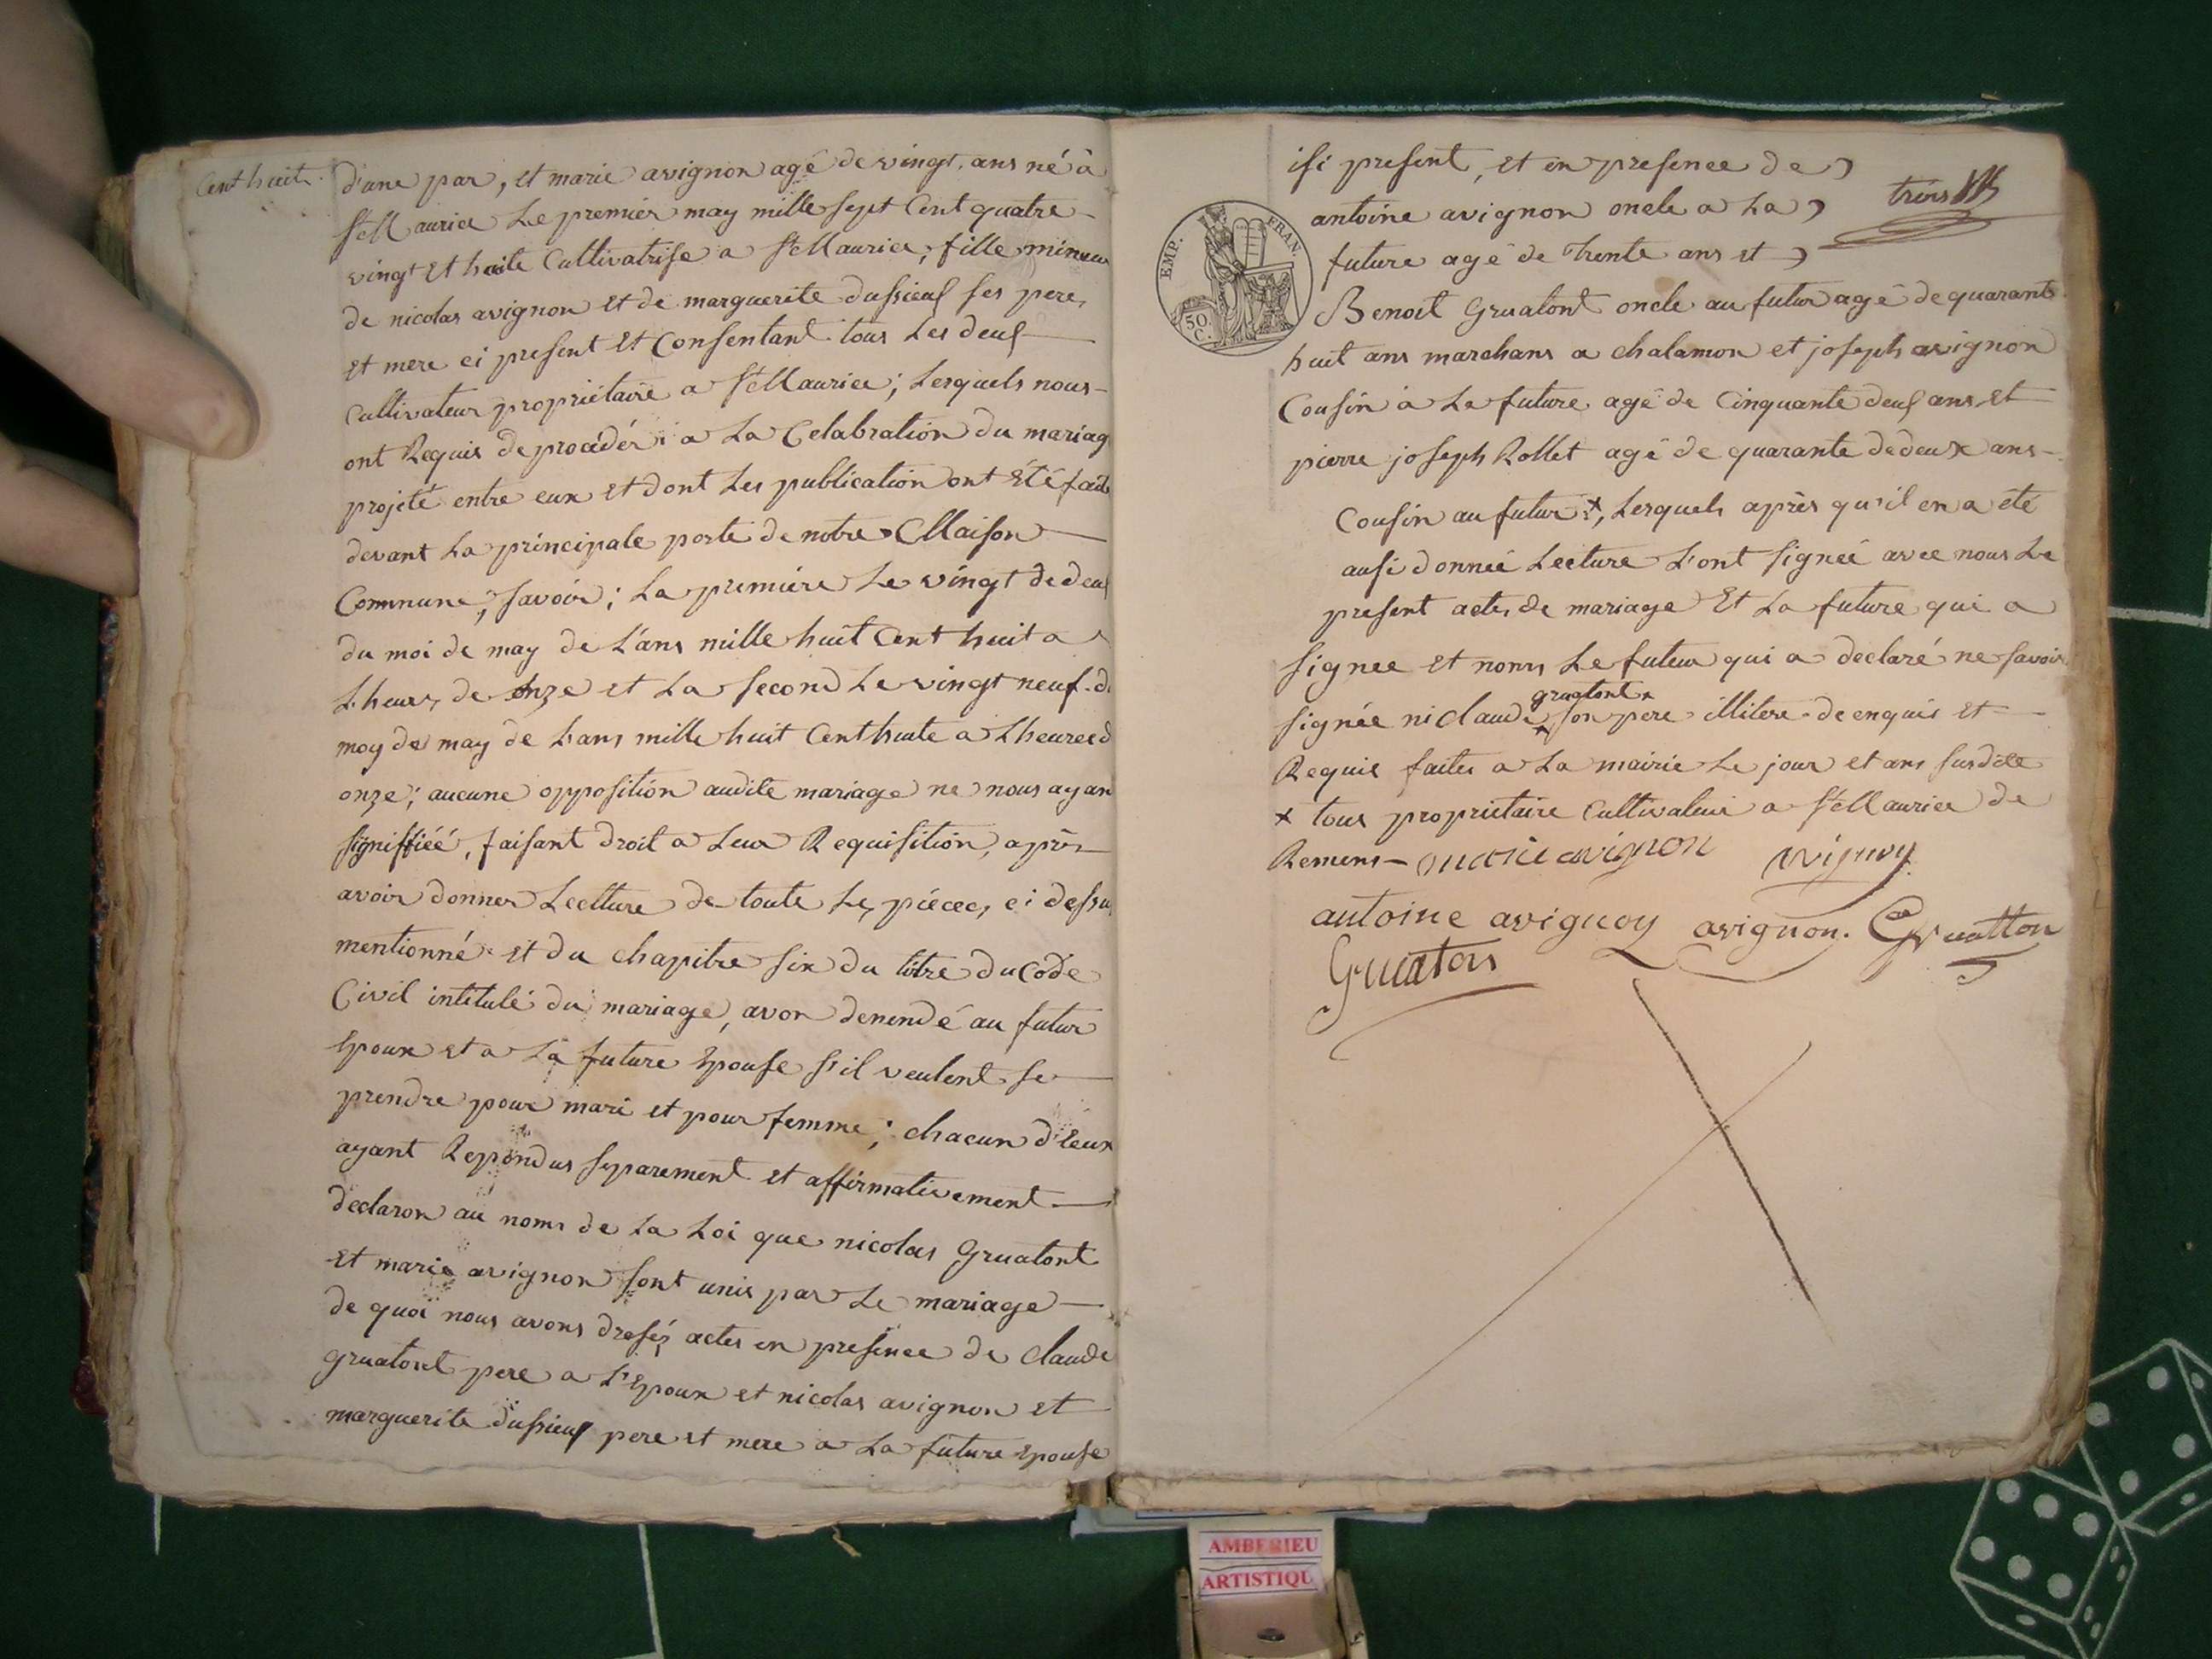 Cent huit.
d'une par, et marie avignon agé de vingt ans né à
St Maurice Le premier may mille sept Cent quatre
vingt et huite Cultivatrise a St Maurice, fille mineur
de nicolas avignon et de marguerite dussieux ses pere,
et mere ci present et Consentant tous Les deux
Cultivateur propriétaire a St Maurice; Lesquels nous
ont Requis de procédér a La Celabration du mariag
projeté entre eux et dont Les publication ont été fait
devant La principale porte de notre Maison
Commune, savoir; La premiére Le vingt de deux
du moi de may de L'ans mille huit Cent huit a
L'heure de onze et La second Le vingt neuf d
moy de may de L'ans mille huit Cent huite a L'heure d
onze; aucune opposition audite mariage ne nous ayan
signiffiéé, faisant droit a Leur Requisition, après
avoir donner Leclture de toute Les piécec, ci dessu
mentionné et du chapitre six du titre du Code
Civil intitulé du mariage, avon demendé au futur
Epoux et a La future Epouse s'il veulent se
prendre pour mari et pour femme; chacun d'Eeux
ayant Repondus separement et affirmativement
declaron au noms de La Loi que nicolas Gruatont
et marie avignon sont unis par Le mariage
de quoi nous avons dresséz actes en presence de claude
gruatont pere a L'Epoux et nicolas avignon et
marguerite dussieux pere et mere a La future Epouse
isi present, et en presence de
antoine avignon oncle a La
future agé de Trente ans et
Benoit Gruatont oncle au futur agé de quarante
huit ans marchans a chalamon et joseph avignon
Cousin a La future agé de Cinquante deux ans, et
pierre joseph Rollet agé de quarante de deux ans
Cousin au futur x, Lesquels après qu'il en a été
ausi donnéé Lecture L'ont signéé avec nous Le
present actes de mariage Et La future qui a
signee et noms Le futeur qui a declaré ne savoir
gruatont x
signée ni claude x son pere illitere de enquis et
Requis faites a La mairie Le jour et ans susdite
x tous propriétaire Cultivateur a St Maurice de
Remens marie avignon
antoine avignon avignon. Gruatton
Gruaton
EMP. FRAN.
50. C.
AMBERIEU
ARTISTIQU